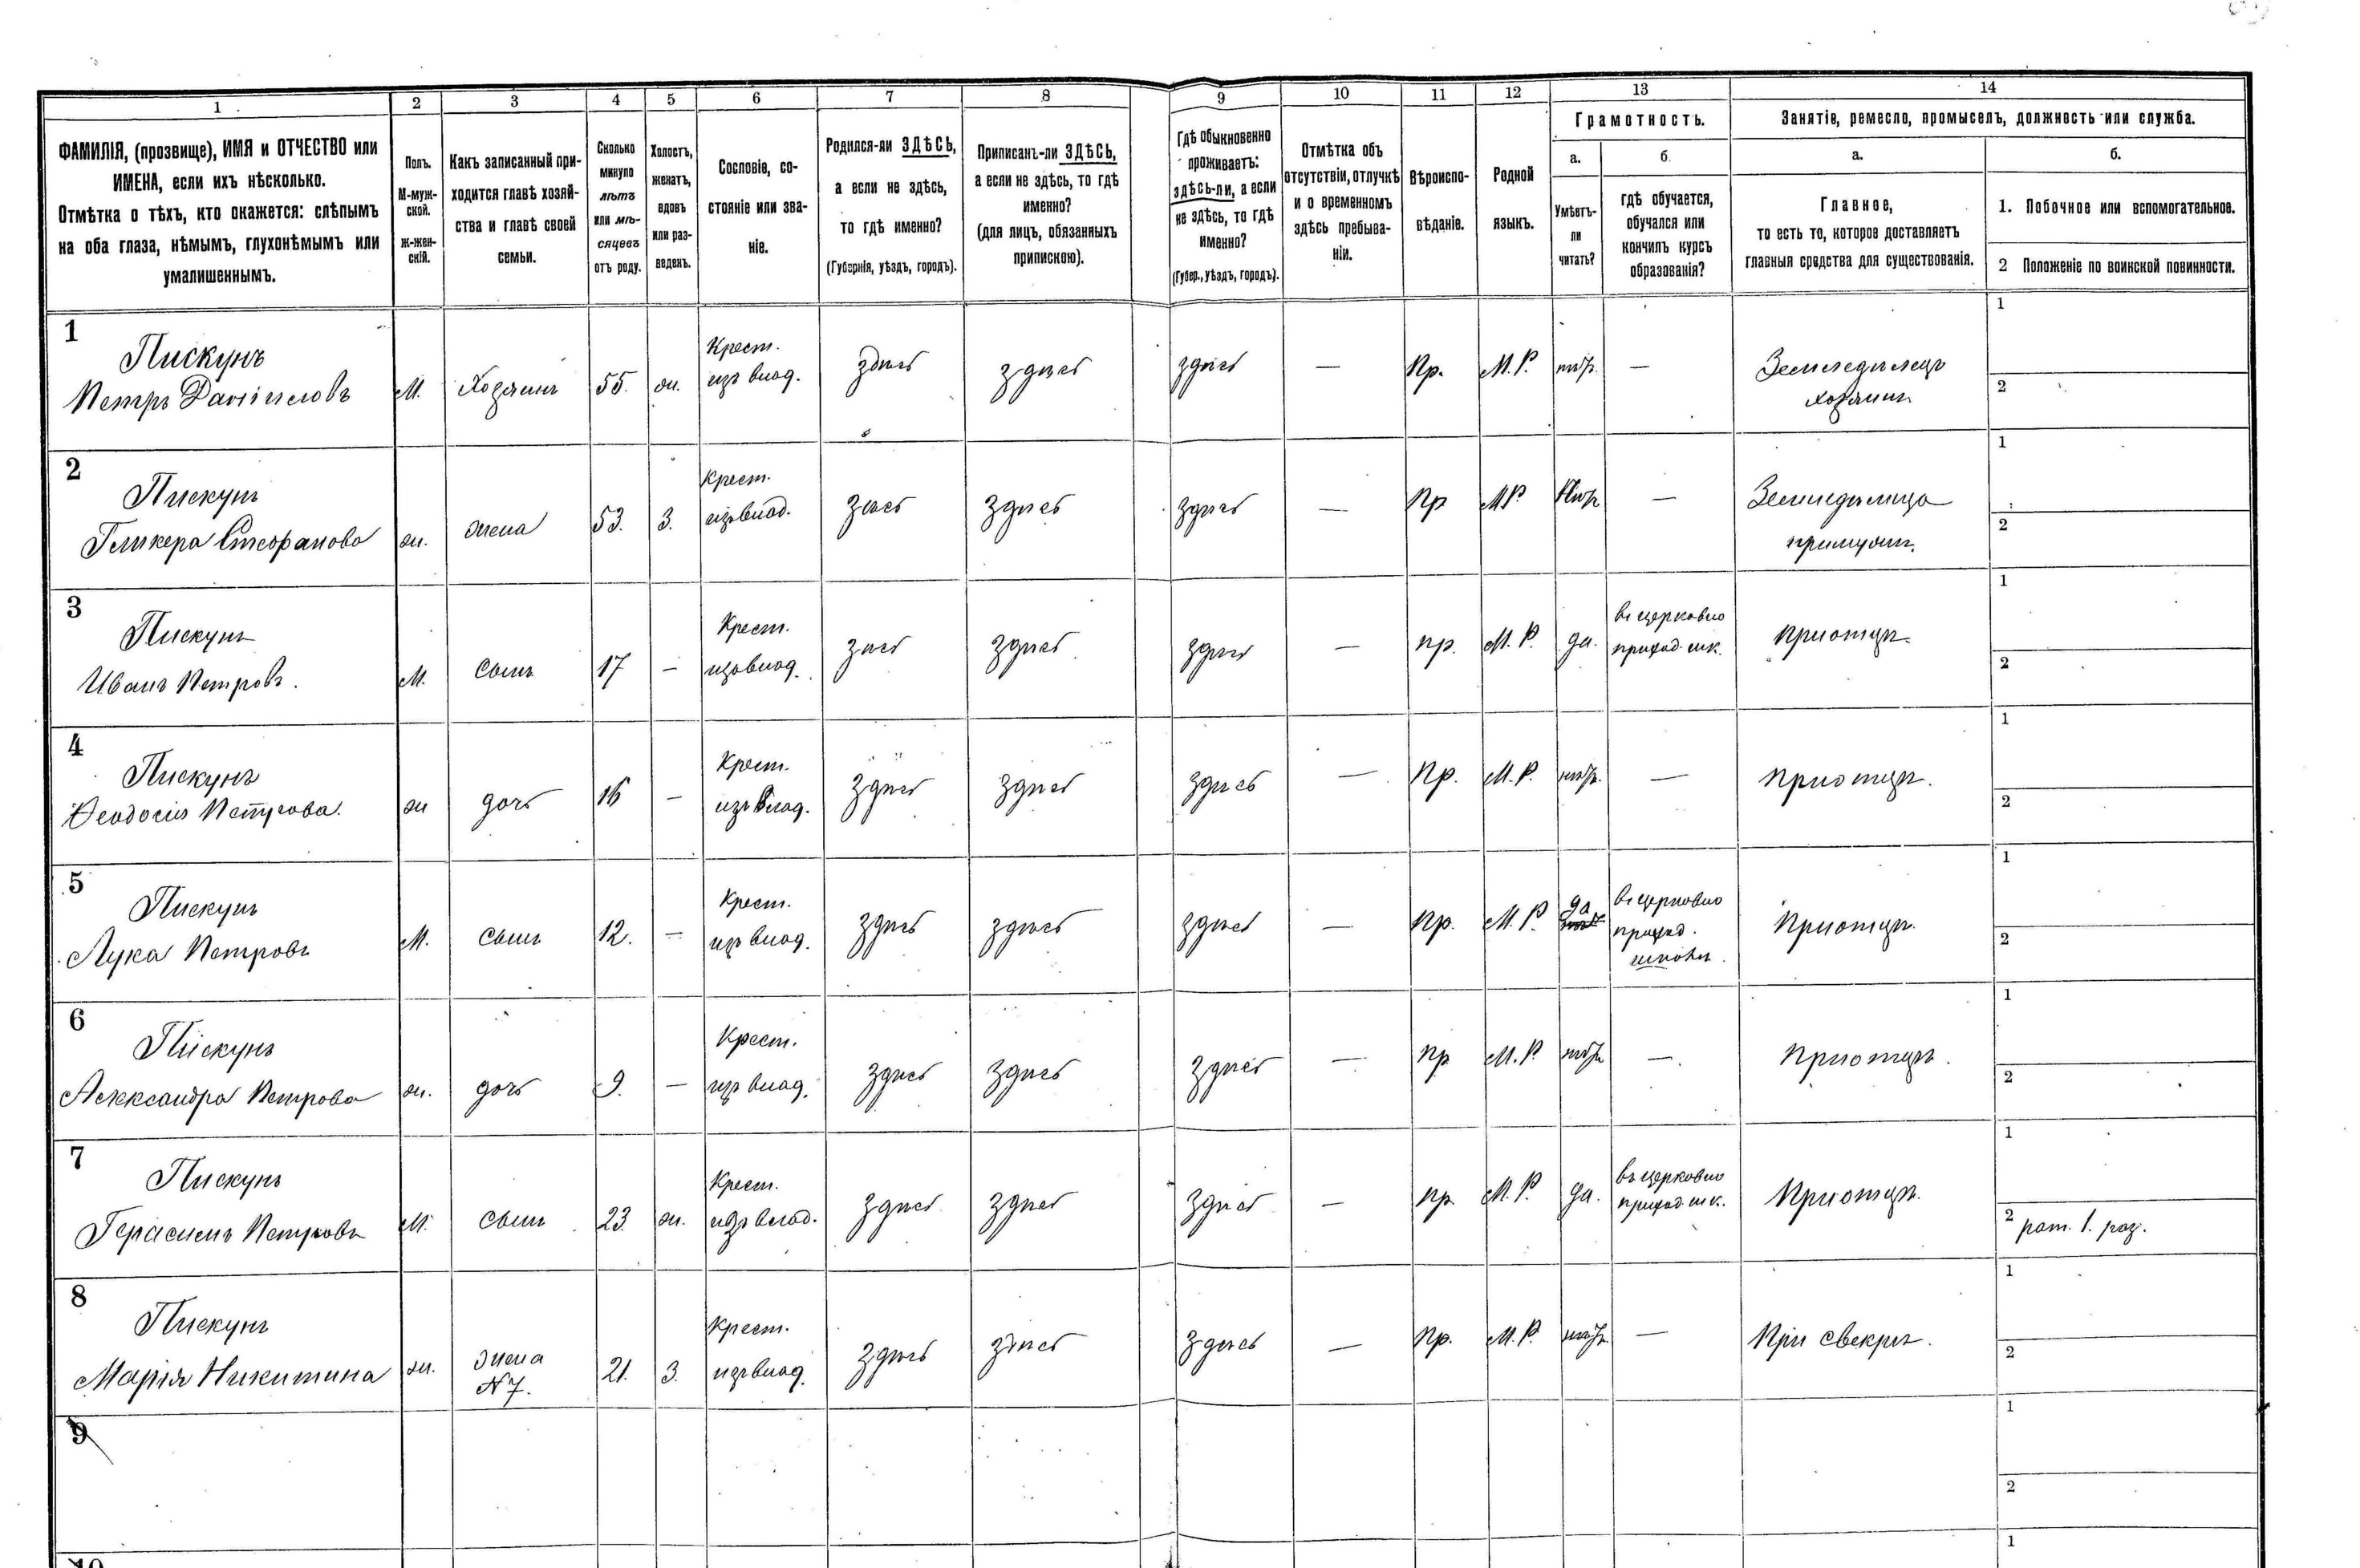 1 2 3 4 5 6 7 8 9 10 11 12 13 14
ФАМИЛІЯ, (прозвище), ИМЯ и ОТЧЕСТВО или
ИМЕНА, если ихъ нѣсколько.
Отмѣтка о тѣхъ, кто окажется: слѣпымъ
на оба глаза, нѣмымъ, глухонѣмымъ или
умалишеннымъ.
Полъ.
М-муж-
ской.
ж-жен-
скій.
Какъ записанный при-
ходится главѣ хозяй-
ства и главѣ своей
семьи.
Сколько
минуло
лѣтъ
или мѣ-
сяцевъ
отъ роду.
Холостъ,
женатъ,
вдовъ
или раз-
веденъ.
Сословіе, со-
стояніе или зва-
ніе.
Родился-ли ЗДѢСЬ,
а если не здѣсь,
то гдѣ именно?
(Губернія, уѣздъ, городъ).
Приписанъ-ли ЗДѢСЬ,
а если не здѣсь, то гдѣ
именно?
(для лицъ, обязанныхъ
припискою).
Гдѣ обыкновенно
проживаетъ:
здѣсь-ли, а если
не здѣсь, то гдѣ
именно?
(Губер., уѣздъ, городъ).
Отмѣтка объ
отсутствіи, отлучкѣ
и о временномъ
здѣсь пребыва-
ніи.
Вѣроиспо-
вѣданіе.
Родной
языкъ.
Грамотность.
а.
Умѣетъ-
ли
читать?
б.
гдѣ обучается,
обучался или
кончилъ курсъ
образованія?
Занятіе, ремесло, промыселъ, должность или служба.
а.
Главное,
то есть то, которое доставляетъ
главныя средства для существованія.
б.
1. Побочное или вспомогательное.
2 Положеніе по воинской повинности.
1
Пискунъ
Петръ Даніиловъ
М.
Хозяинъ
55.
ж.
Крест.
изъ влад.
здѣсь
здѣсь
здѣсь
—
Пр.
М.Р.
нѣтъ.
—
Земледѣлецъ
хозяинъ
1
2
2
Пискунъ
Гликера Стефанова
ж.
жена
53.
З.
Крест.
изъ влад.
здѣсь
здѣсь
здѣсь
—
Пр
МР.
Нѣтъ
—
Земледѣлица
при мужѣ.
1
2
3
Пискунъ
Иванъ Петровъ.
М.
сынъ
17
—
Крест.
изъ влад.
здѣсь
здѣсь
здѣсь
—
пр.
М.Р.
да.
въ церковно
приход. шк.
При отцѣ.
1
2
4
Пискунъ
Ѳеодосія Петрова.
ж
дочь
16
—
Крест.
изъ влад.
здѣсь
здѣсь
здѣсь
—
Пр.
М.Р.
нѣтъ.
—
При отцѣ.
1
2
5
Пискунъ
Лука Петровъ
М.
сынъ
12.
—
Крест.
изъ влад.
здѣсь
здѣсь
здѣсь
—
Пр.
М.Р.
да
въ церковно
приход.
школѣ.
При отцѣ.
1
2
6
Пискунъ
Александра Петрова
ж.
дочь
9.
—
Крест.
изъ влад.
здѣсь
здѣсь
здѣсь
—
Пр
М.Р.
нѣтъ
—.
При отцѣ.
1
2
7
Пискунъ
Герасимъ Петровъ
М.
сынъ
23.
ж.
Крест.
изъ влад.
здѣсь
здѣсь
здѣсь
—
пр.
М.Р.
да.
въ церковно
приход. шк.
При отцѣ.
1
2 рат. 1. раз.
8
Пискунъ
Марія Никитина
ж.
жена
№ 7.
21.
З.
Крест.
изъ влад.
здѣсь
здѣсь
здѣсь
—
Пр.
М.Р.
нѣтъ
—
При свекрѣ.
1
2
9
1
2
10
1